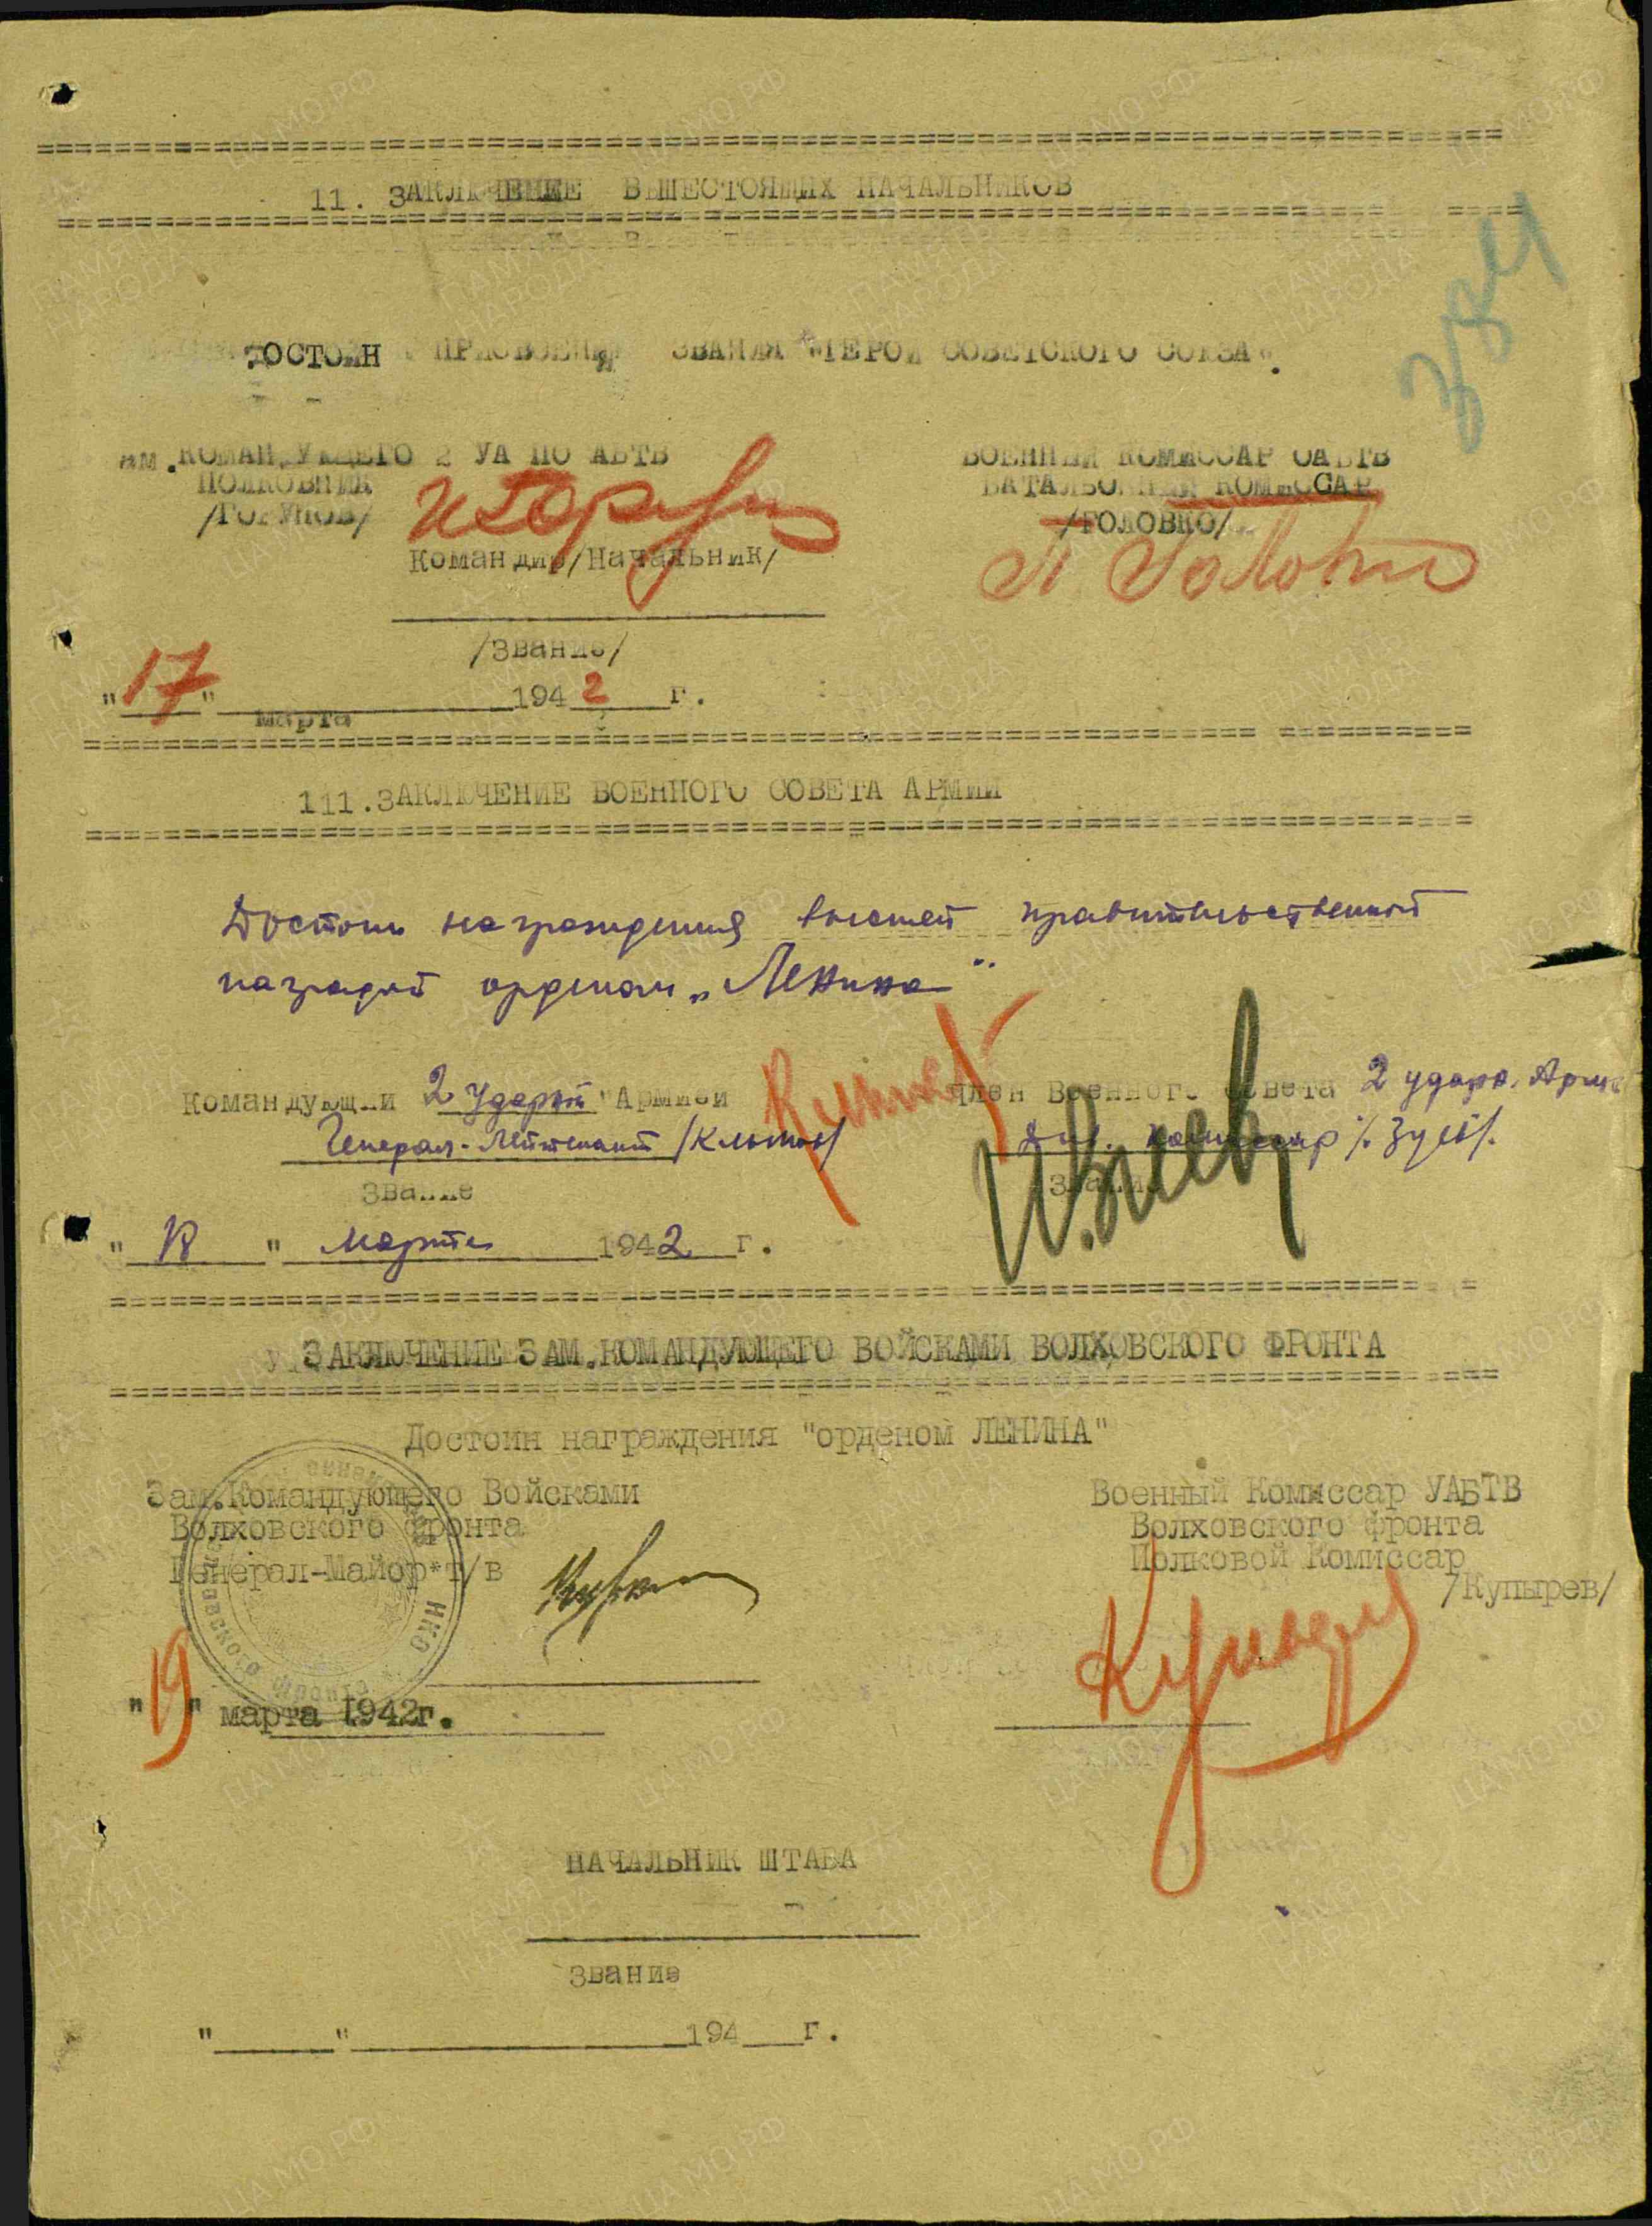 11. ЗАКЛЮЧЕНИЕ ВЫШЕСТОЯЩИХ НАЧАЛЬНИКОВ
324
ДОСТОИН ПРИСВОЕНИЯ ЗВАНИЯ "ГЕРОЙ СОВЕТСКОГО СОЮЗА".
ам. КОМАНДУЮЩЕГО 2 УА ПО АБТВ
ПОЛКОВНИК
/ГОРУНОВ/
Командир/Начальник/
ВОЕННЫЙ КОМИССАР ОАБТВ
БАТАЛЬОННЫЙ КОМИССАР
/ГОЛОВКО/
/Звание/
"17" марта 1942 г.
111. ЗАКЛЮЧЕНИЕ ВОЕННОГО СОВЕТА АРМИИ
Достоин награждения высшей правительственной
наградой орденом "Ленина"
Командующий 2 Ударной Армией
Генерал-Лейтенант /Клыков/
Звание
Член Военного Совета 2 ударн. Арм
Див. комиссар /Зуев/.
Звание
И.Зуев
"18" Марта 1942 г.
ЗАКЛЮЧЕНИЕ ЗАМ.КОМАНДУЮЩЕГО ВОЙСКАМИ ВОЛХОВСКОГО ФРОНТА
Достоин награждения "орденом ЛЕНИНА"
Зам.Командующего Войсками
Волховского фронта
Генерал-Майор т/в
Военный Комиссар УАБТВ
Волховского фронта
Полковой Комиссар
/Купырев/
НКО
"19" марта 1942г.
НАЧАЛЬНИК ШТАБА
Звание
"____"____________194__г.
ПАМЯТЬ НАРОДА
ЦАМО.РФ